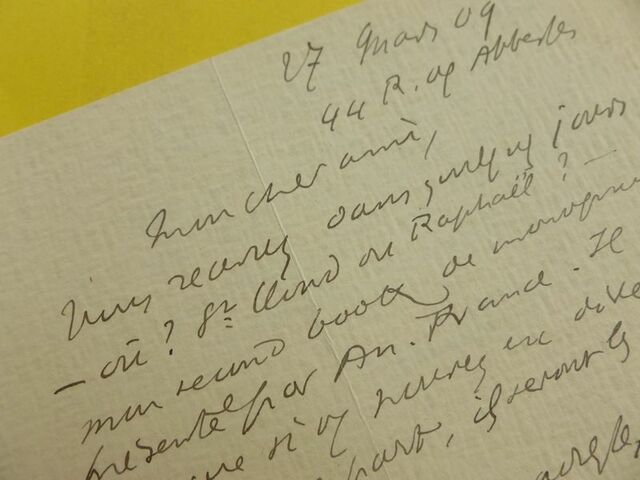 27 Mars 09
44 R. des Abbesses
Mon cher ami,
Vous recevrez dans quelques jours
— où ? St Cloud ou Raphaël ? —
mon second book de monogra
présenté par An. France. Il
que si vs
part, ils seront